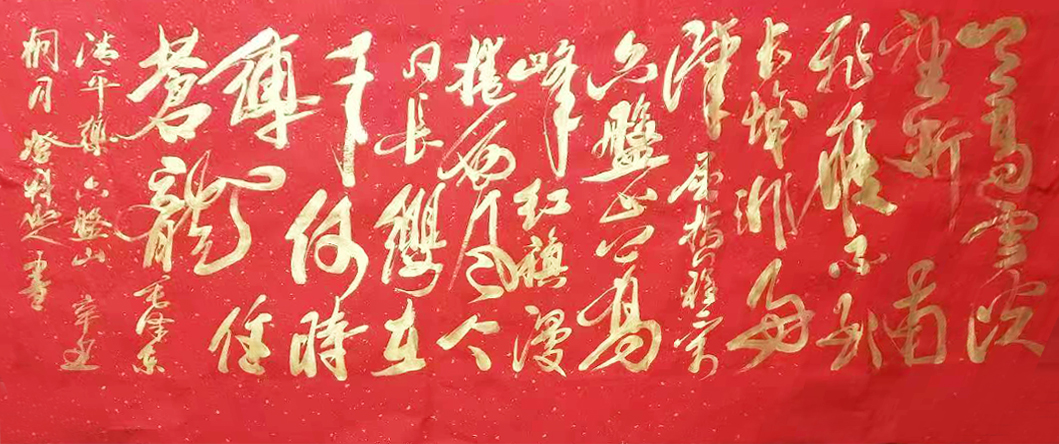 天高雲淡
望断南
飛雁不到
长城非好
漢屈指行程二万
六盤山上高
峰红旗漫
捲西风今
日长缨在
手何時
缚住
蒼龍毛澤东
清平樂六盤山辛丑
桐月書